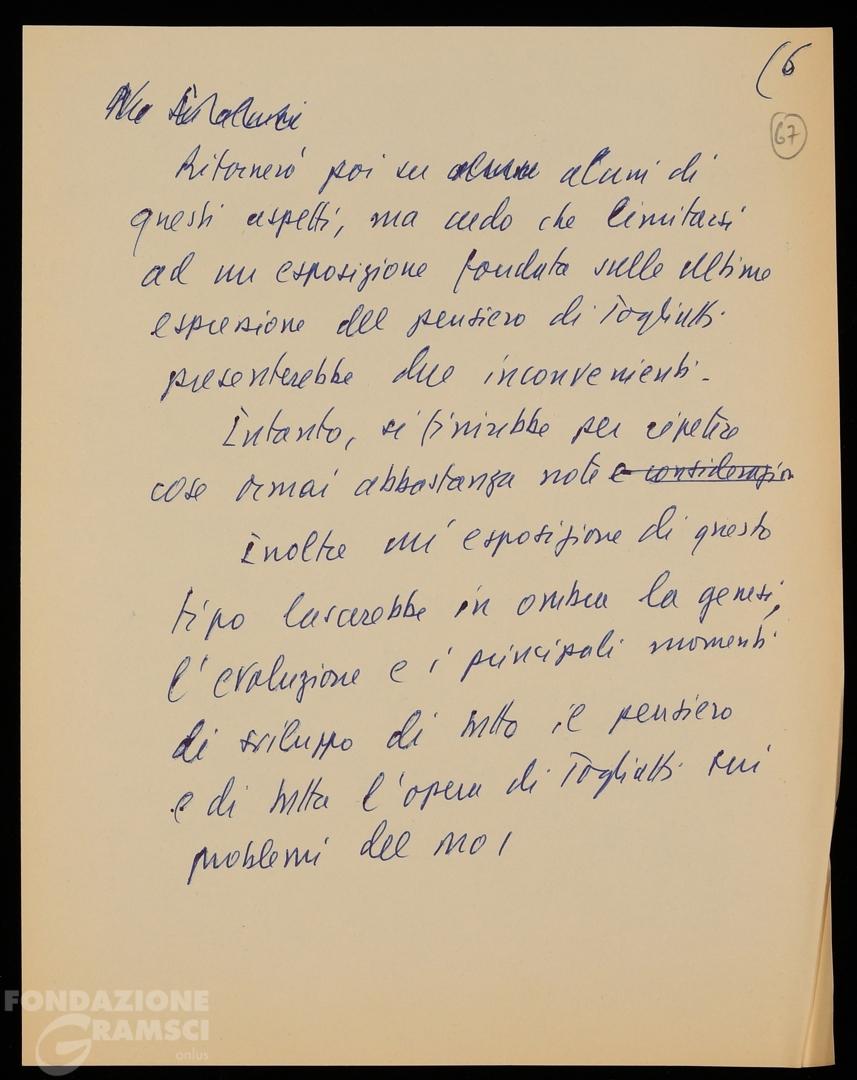 (6
67
Ritornerò poi su alcuni di
questi aspetti, ma credo che limitarsi
ad un esposizione fondata sulle ultime
espressione del pensiero di Togliatti
presenterebbe due inconvenienti.
Intanto, si finirebbe per ripetere
cose ormai abbastanza note e considerazion
Inoltre un'esposizione di questo
tipo lascerebbe in ombra la genesi,
l'evoluzione e i principali momenti
di sviluppo di tutto il pensiero
e di tutta l'opera di Togliatti sui
problemi del mo
FONDAZIONE
GRAMSCI
onlus